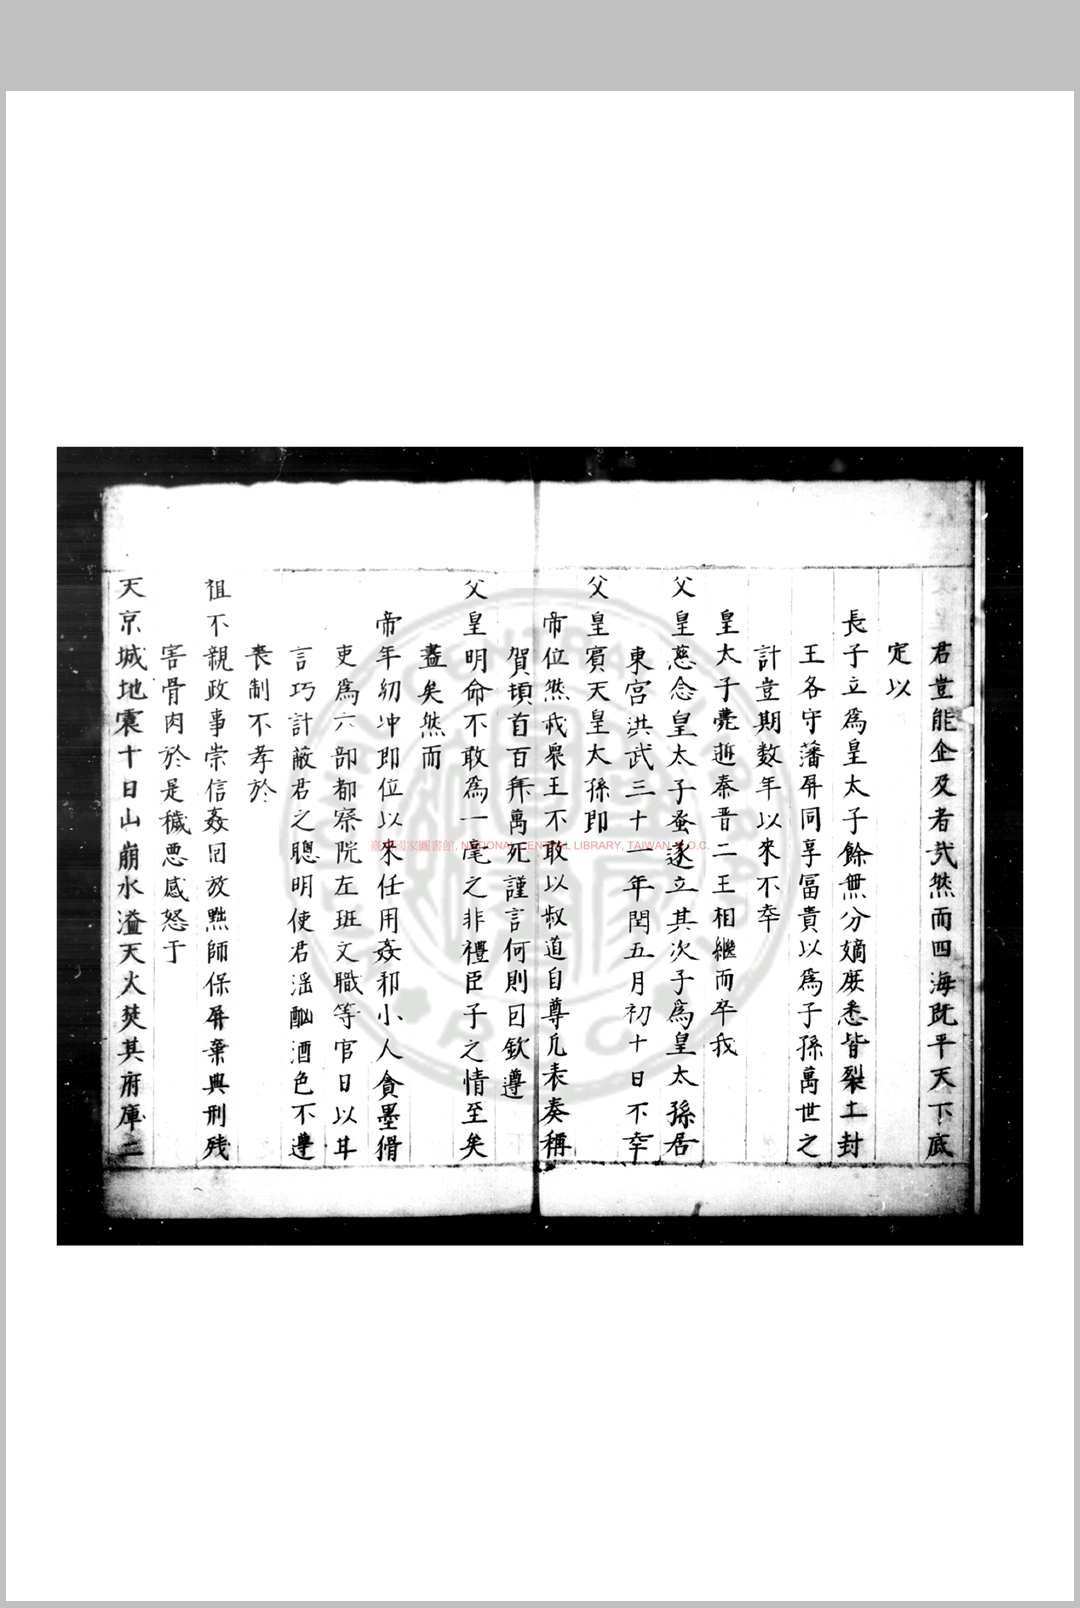 君豈能企及者哉然而四海既平天下底
定以
長子立爲皇太子餘無分嫡庶悉皆裂土封
王各守藩屏同享冨貴以爲子孫萬世之
計豈期数年以來不幸
皇太子薨逝秦晋二王相継而卒我
父皇慈念皇太子蚤逐立其次子爲皇太孫居
東宮洪武三十一年閏五月初十日不幸
父皇賓天皇太孫即
帝位然我衆王不敢以叔道自尊凢表奏稱
賀頓首百拜萬死謹言何則曰欽遵
父皇明命不敢爲一毫之非禮臣子之情至矣
盡矣然而
帝年幼冲即位以來任用姦邪小人貪墨猾
吏爲六部都察院左班文職等官日以甘
言巧計蔽君之聰明使君滛酗酒色不遵
喪制不孝於
祖不親政事崇信姦回放黜師保屏棄典刑残
害骨肉於是穢悪感怒于
天京城地震十日山崩水溢天火焚其府庫二
NATIONAL CENTRAL LIBRARY, TAIWAN, R.O.C.